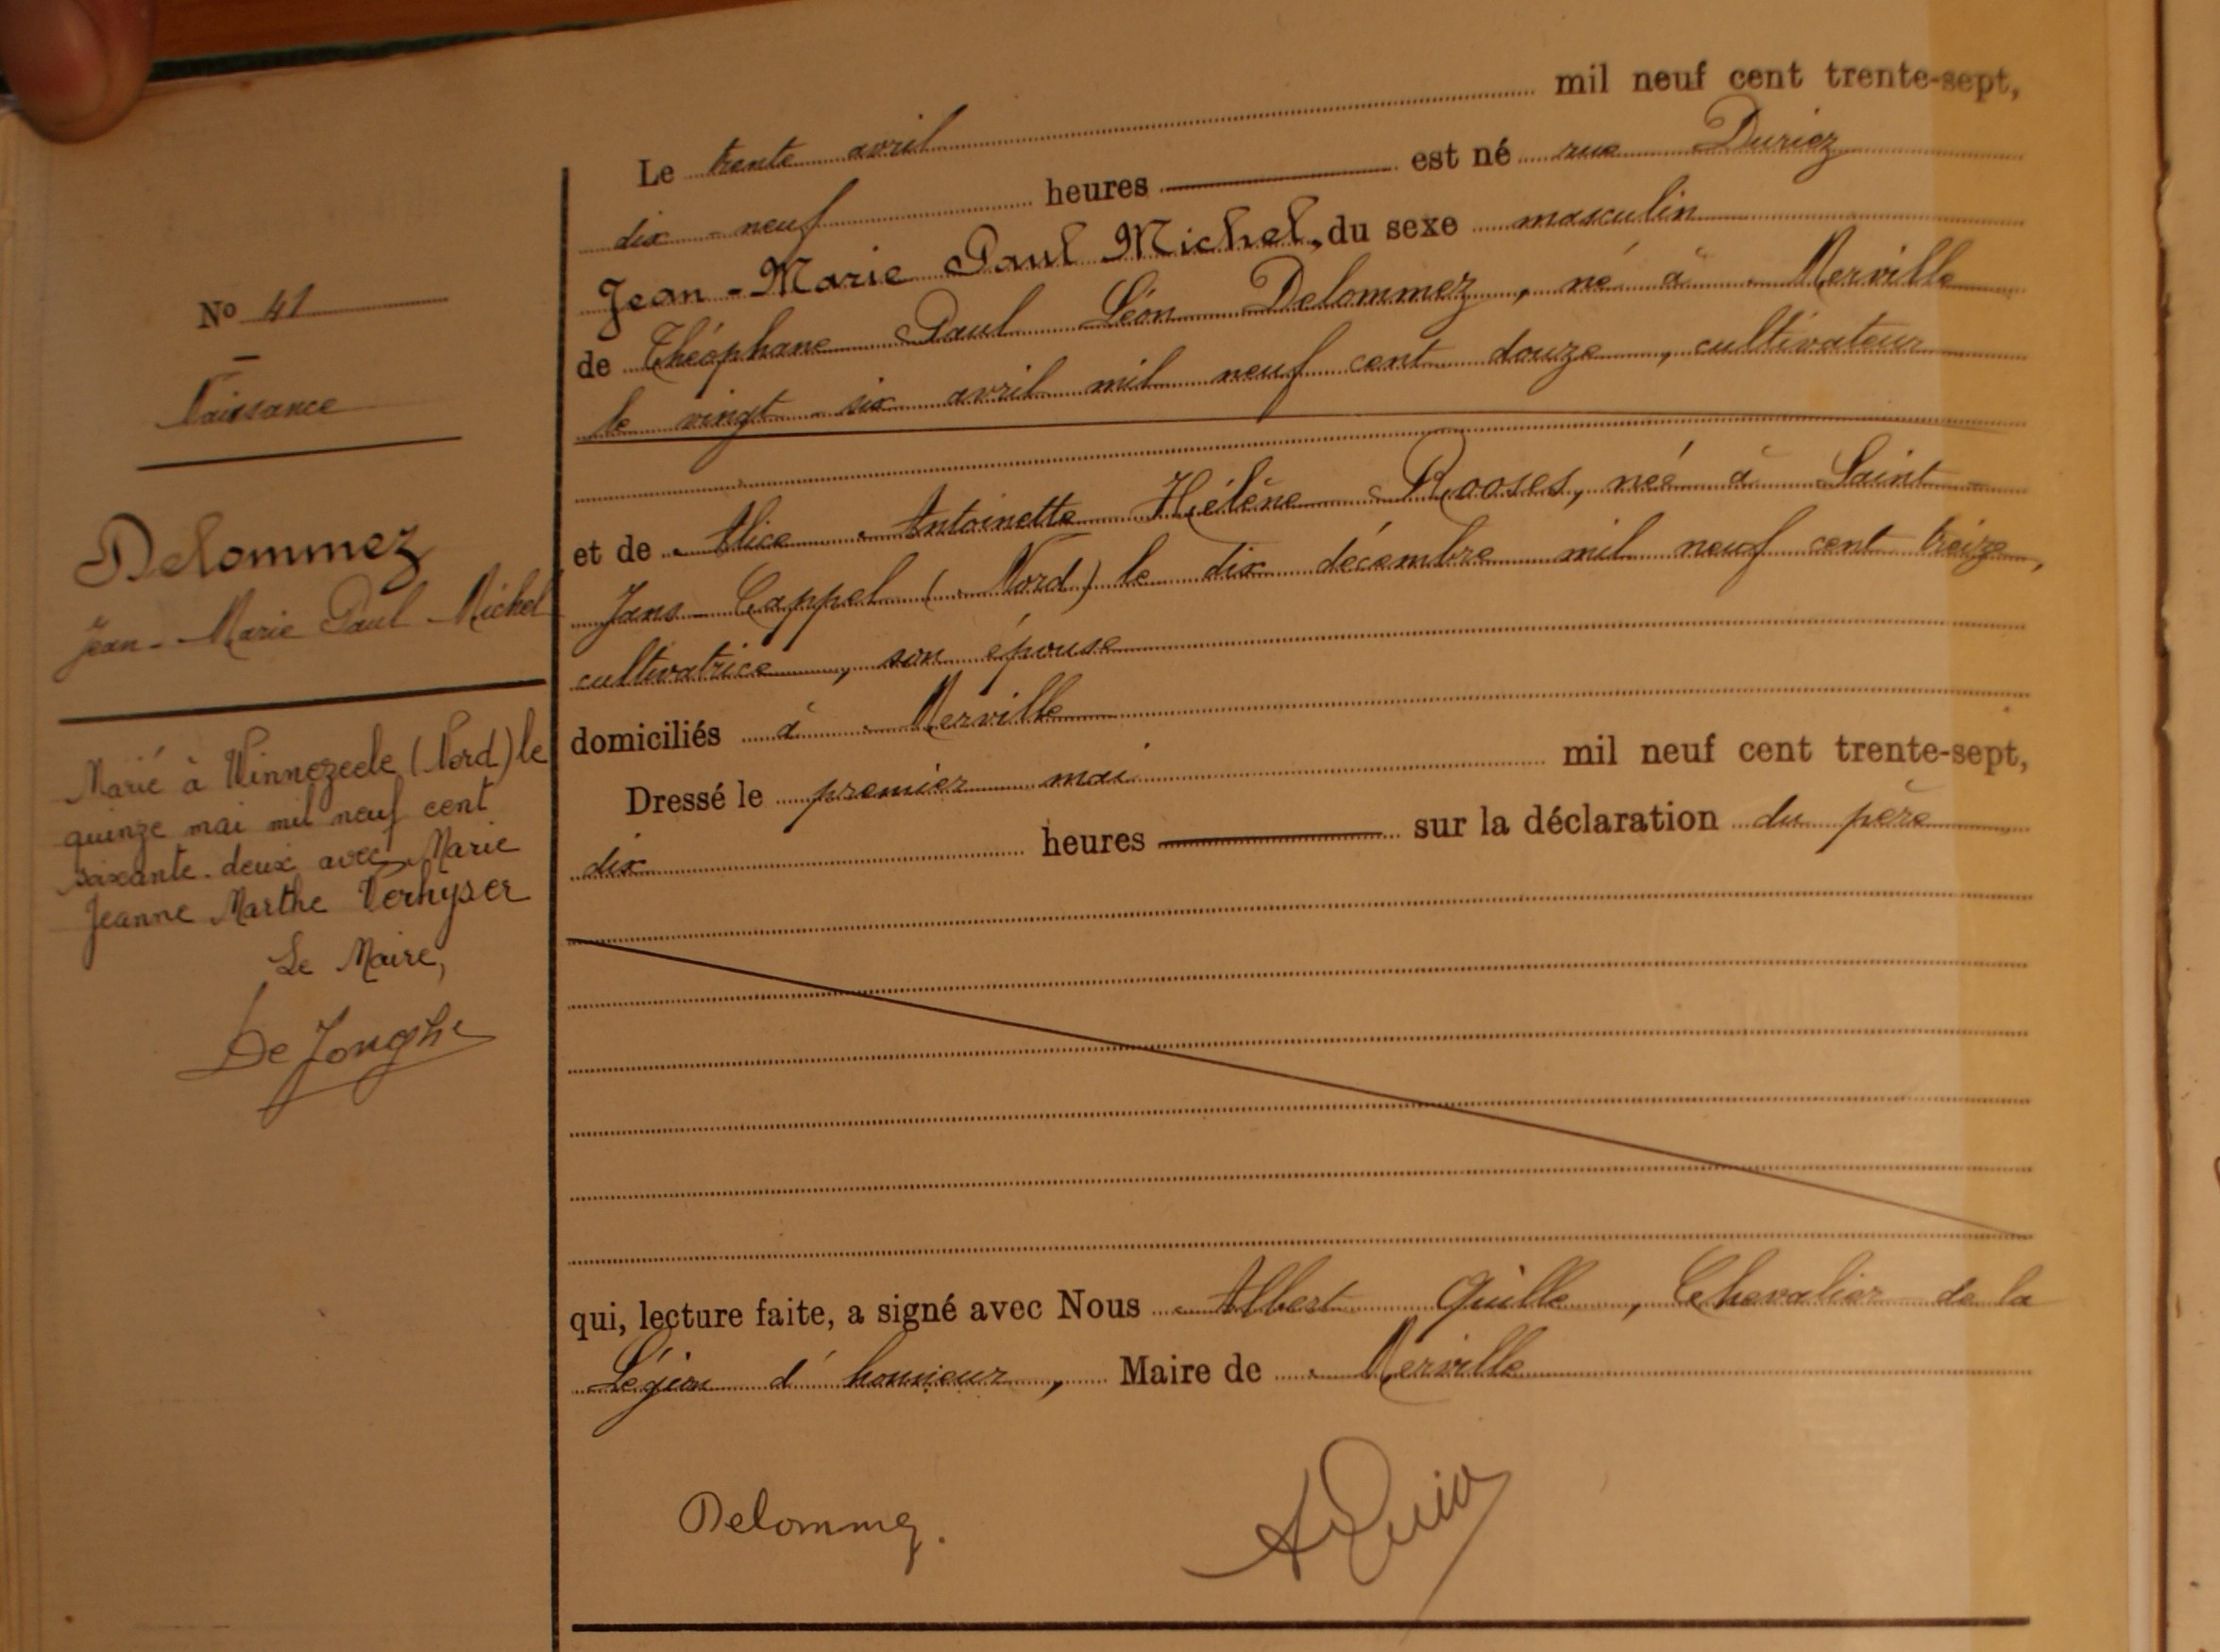 No 41
Naissance
Delommez
Jean-Marie Paul Michel
Marié à Winnezeele (Nord) le
quinze mai mil neuf cent
soixante-deux avec Marie
Jeanne Marthe Verhyser
Le Maire,
De Jonghe
Le trente avril mil neuf cent trente-sept,
dix-neuf heures est né rue Duriez
Jean-Marie Paul Michel, du sexe masculin
de Théophane Paul Léon Delommez, né à Merville
le vingt-six avril mil neuf cent douze, cultivateur
et de Alice Antoinette Hélène Rooses, née à Saint-
Jans-Cappel (Nord) le dix décembre mil neuf cent treize,
cultivatrice, son épouse
domiciliés à Merville
Dressé le premier mai mil neuf cent trente-sept,
dix heures sur la déclaration du père
qui, lecture faite, a signé avec Nous Albert Quille, Chevalier de la
Légion d'honneur, Maire de Merville
Delommez.